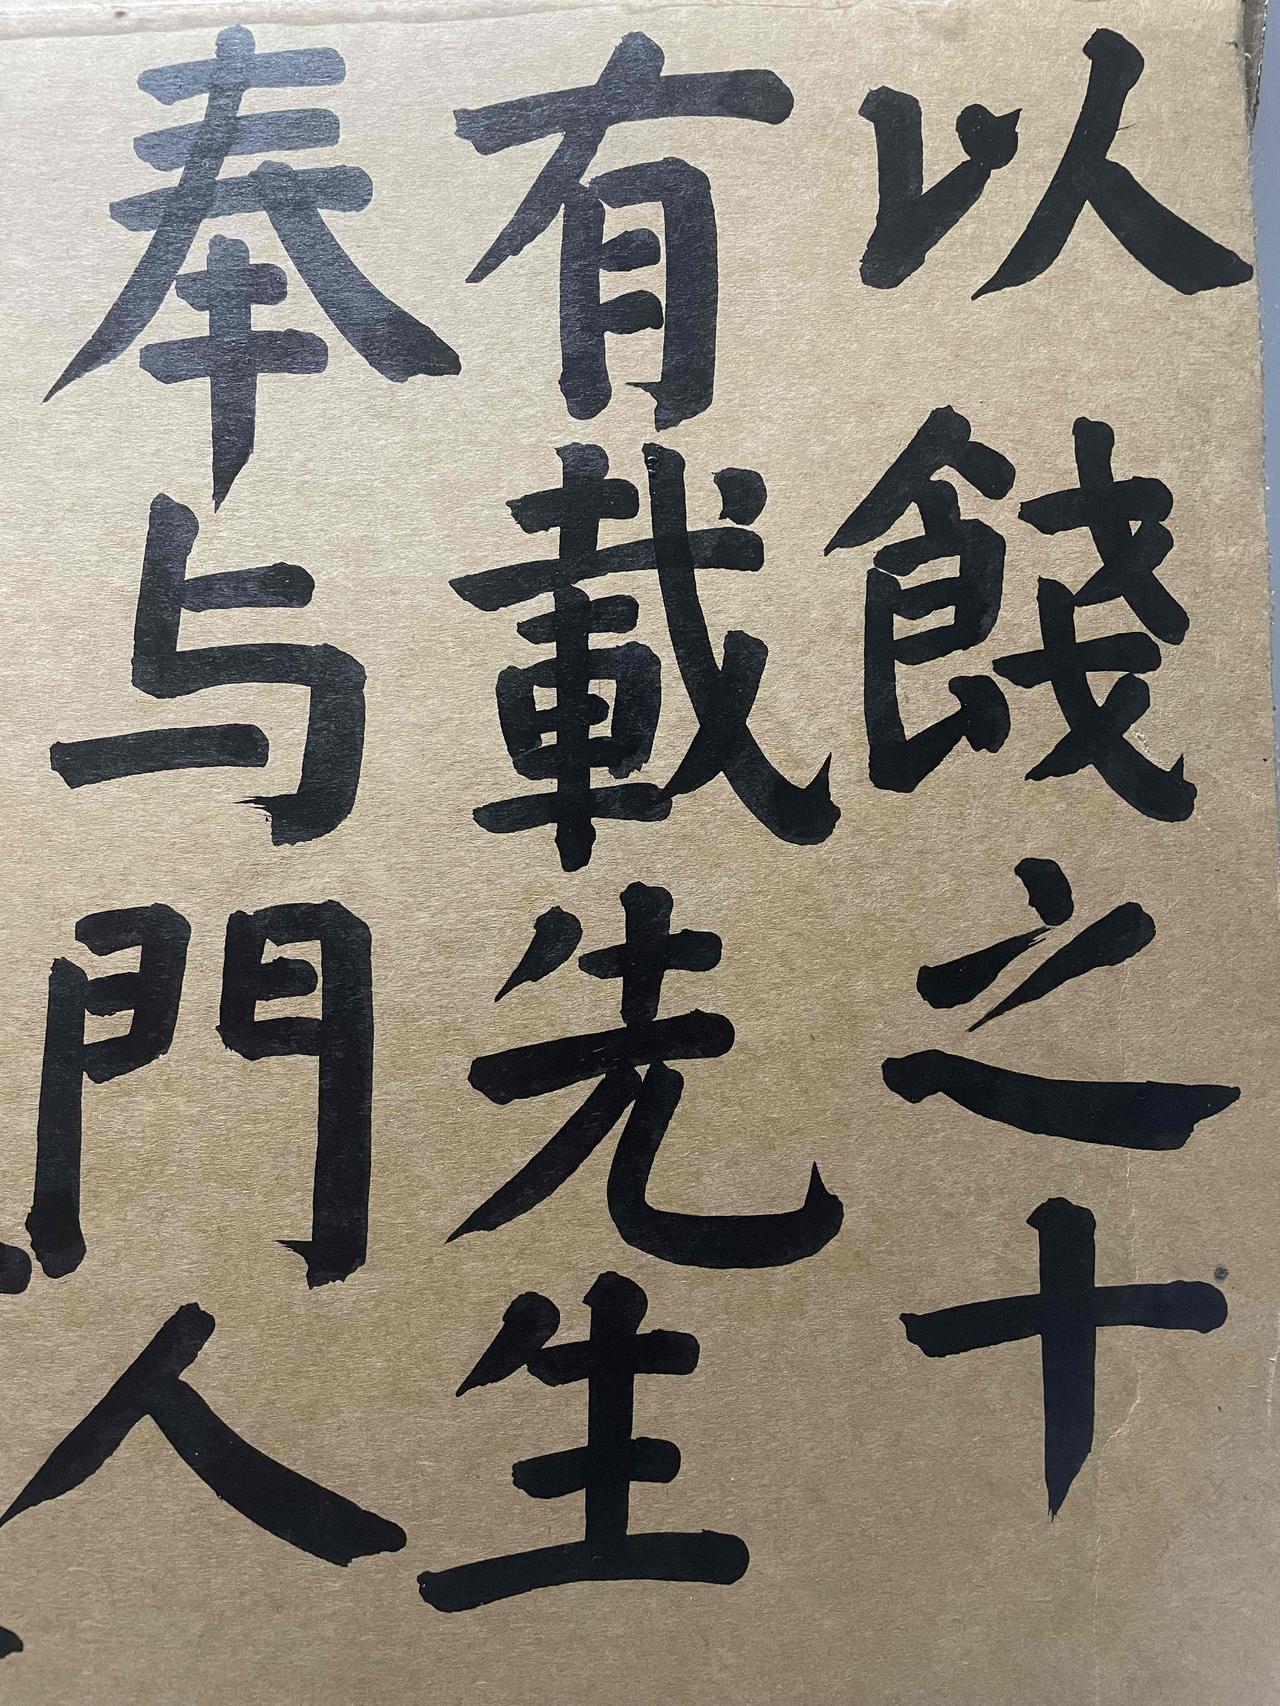 以餞之十
有載先生
奉与門人